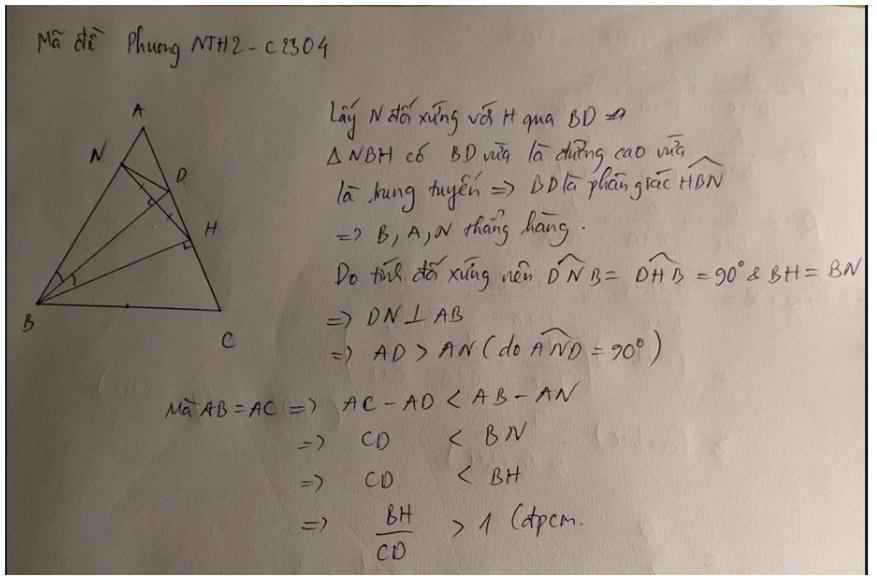 Mã đề Phuong NTH2-C2304
A
N
D
H
B
C
Lấy N đối xứng với H qua BD =>
Δ NBH có BD vừa là đường cao vừa
là trung tuyến => BD là phân giác HBN
=> B, A, N thẳng hàng.
Do tính đối xứng nên DNB = DHB = 90° & BH = BN
=> DN ⊥ AB
=> AD > AN (do AND = 90°)
Mà AB = AC => AC - AD < AB - AN
=> CD < BN
=> CD < BH
=> BH/CD > 1 (đpcm.